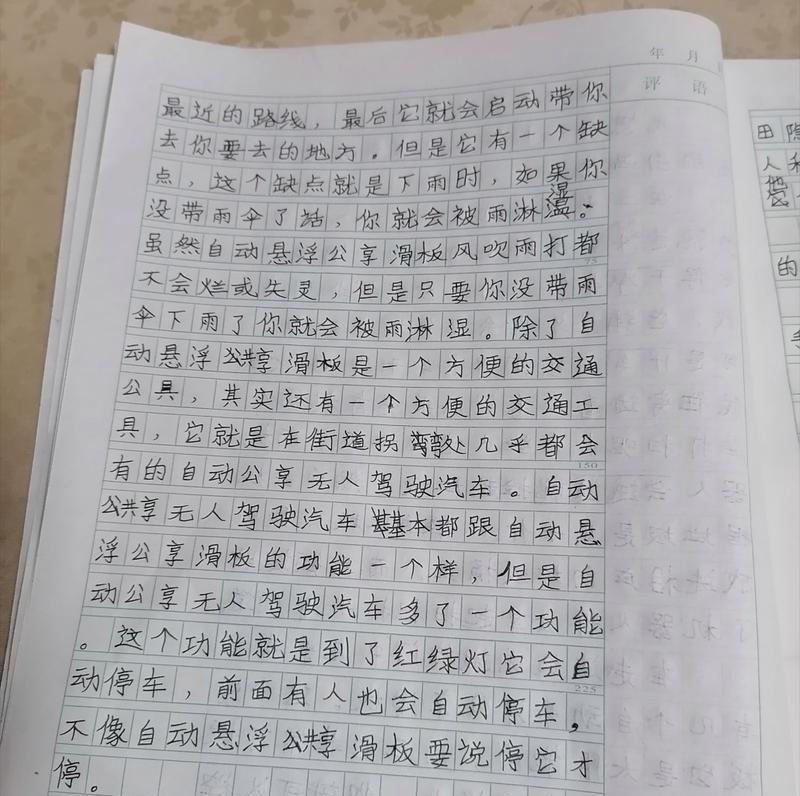 年 月
评 语
最近的路线，最后它就会启动带你
去你要去的地方。但是它有一个缺
点，这个缺点就是下雨时，如果你
湿
没带雨伞了话，你就会被雨淋。
虽然自动悬浮公享滑板风吹雨打都
75
不会烂或失灵，但是只要你没带雨
伞下雨了你就会被雨淋湿。除了自
动悬浮公共享滑板是一个方便的交通
公具，其实还有一个方便的交通工
具，它就是在街道拐弯处几乎都会
150
有的自动公享无人驾驶汽车。自动
公共享无人驾驶汽车基本都跟自动悬
浮公享滑板的功能一个样，但是自
动公享无人驾驶汽车多了一个功能
。这个功能就是到了红绿灯它会自
225
动停车，前面有人也会自动停车，
不像自动悬浮公共享滑板要说停它才
停。
田隐
人和
的
手